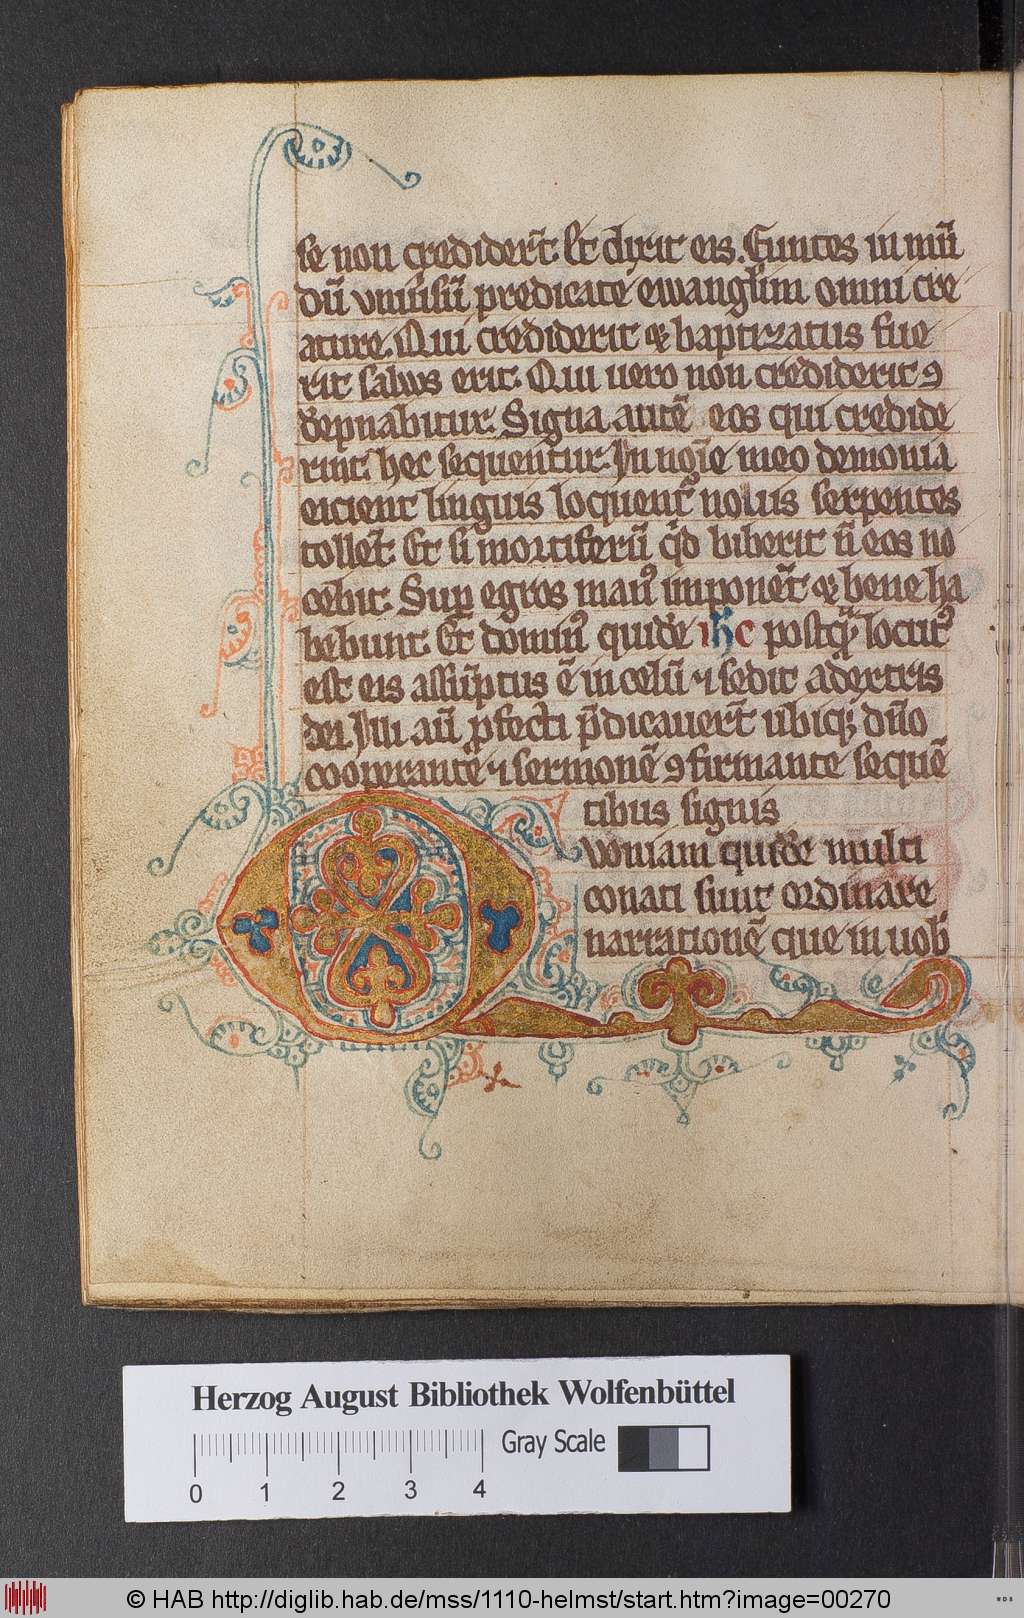 se non credider̄t. Et dixit eis. Euntes in mū
dū vniu̾sū predicate ewangl̄im omni cre
ature. Qui crediderit ⁊ baptizatus fue
rit saluus erit. Qui uero non crediderit ꝯ
dēpnabitur. Signa autē eos qui credide
rint hec sequentur. In noīe meo demonia
eicient linguis loquent᷑ nouis serpentes
tollēt. Et si mortiferū qͥd biberit n̄ eos no
cebit. Suꝑ egros manꝰ imponēt ⁊ bene ha
bebunt. Et dominꝰ quidē ihc postqᷓ locutꝰ
est eis assūptus ē in celū ⁊ sedit a dextris
dei. Illi aū ꝓfecti p̄dicauer̄t ubiqꝫ dn̄o
cooperante ⁊ sermonē ꝯfirmante sequē
tibus signis
Qvoniam quidē multi
conati sunt ordinare
narrationē que in nob̄
Herzog August Bibliothek Wolfenbüttel
Gray Scale
0 1 2 3 4
© HAB http://diglib.hab.de/mss/1110-helmst/start.htm?image=00270